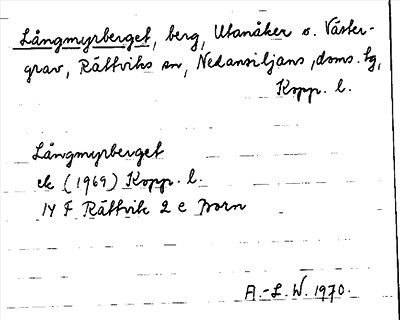 Långmyrberget, berg, Utanåker o. Väster-
grav, Rättviks sn, Nedansiljans, doms. tg,
Kopp. l.
Långmyrberget
ek (1969) Kopp. l.
14 F Rättvik 2 c norn
A.-L. W. 1970.